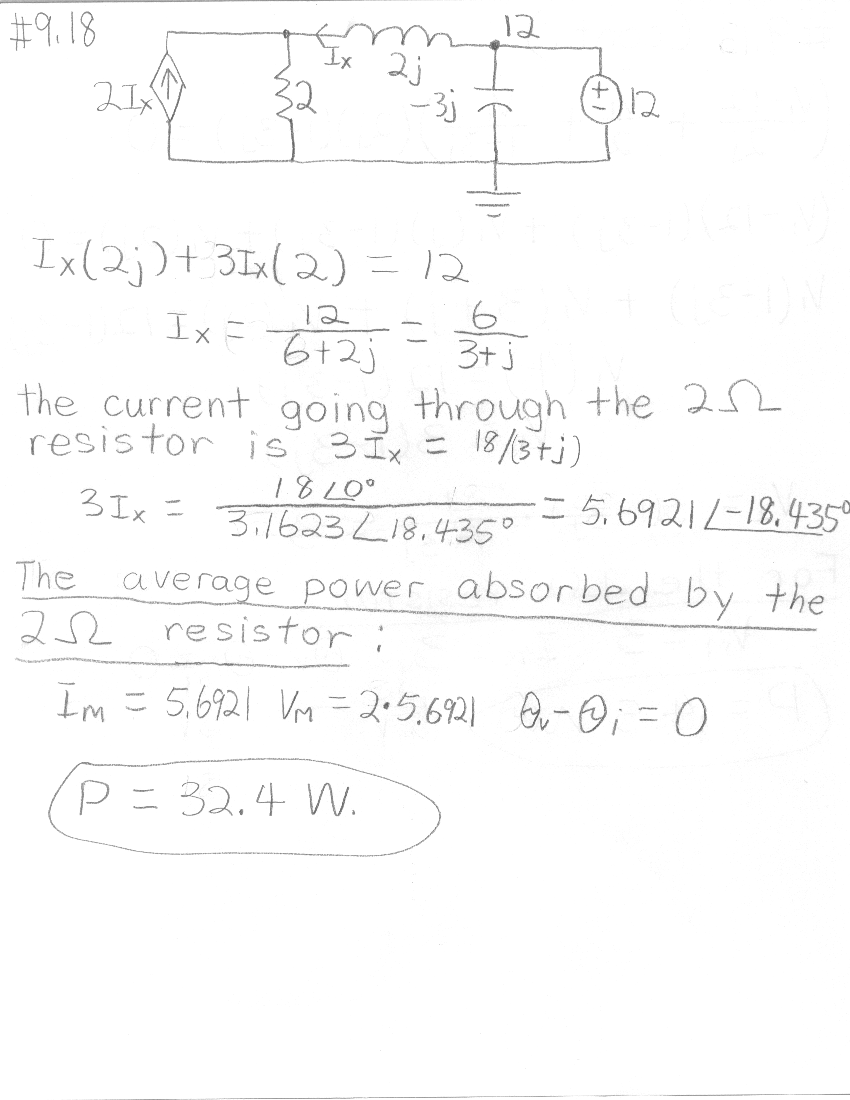 #9.18
12
Ix 2j
2Ix 2 -3j + - 12
Ix(2j) + 3Ix(2) = 12
Ix = 12/(6+2j) = 6/(3+j)
the current going through the 2Ω
resistor is 3Ix = 18/(3+j)
3Ix = 18∠0°/3.1623∠18.435° = 5.6921∠-18.435°
The average power absorbed by the
2Ω resistor:
IM = 5.6921 VM = 2·5.6921 θv-θi = 0
P = 32.4 W.